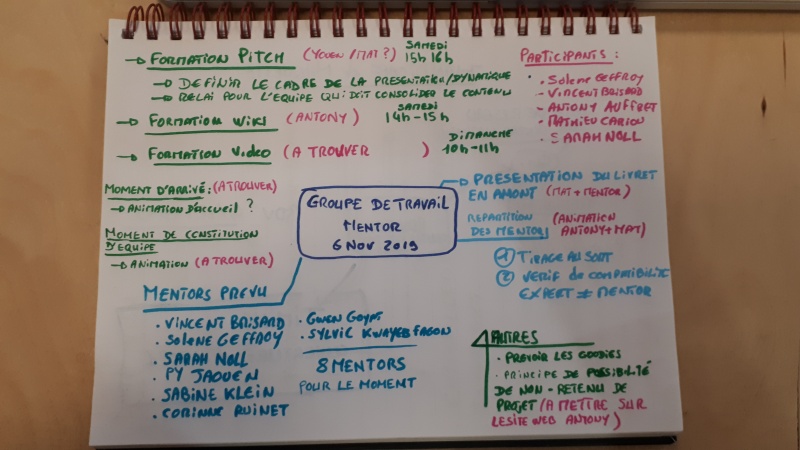 → FORMATION PITCH (YOUEN/MAT?) SAMEDI 15h 16h
→ DEFINIR LE CADRE DE LA PRESENTATION/DYNAMIQUE
→ RELAI POUR L'EQUIPE QUI DOIT CONSOLIDER LE CONTENU
→ FORMATION WIKI (ANTONY) SAMEDI 14h-15h
→ FORMATION VIDEO (A TROUVER ) DIMANCHE 10h-11h
PARTICIPANTS :
• Solene GEFFROY
- VINCENT BRISARD
- ANTONY AUFFRET
- MATHIEU CARIOU
• SARAH NOLL
MOMENT D'ARRIVÉ : (A TROUVER)
→ ANIMATION D'ACCUEIL ?
MOMENT DE CONSTITUTION
D'EQUIPE
→ ANIMATION (A TROUVER)
GROUPE DE TRAVAIL
MENTOR
6 NOV 2019
→ PRESENTATION DU LIVRET
EN AMONT (MAT + MENTOR)
REPARTITION
DES MENTORS (ANIMATION
ANTONY+MAT)
① TIRAGE AU SORT
② VERIF de COMPATIBILITE
EXPERT ≠ MENTOR
MENTORS PREVU
• VINCENT BRISARD
• Solene GEFFROY
• SARAH NOLL
• PY JAOUEN
• SABINE KLEIN
• CORINNE RUINET
• GWEN
• SYLVIC
8 MENTORS
POUR LE MOMENT
AUTRES
• PREVOIR LES GOODIES
• PRINCIPE DE POSSIBILITÉ
DE NON-RETENU DE
PROJET (A METTRE SUR
LE SITE WEB ANTONY)